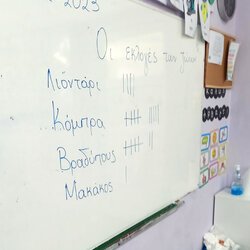 2023
Οι εκλογες των ζώων
Λιοντάρι
Κόμπρα
Βραδύπους
Μακάκος